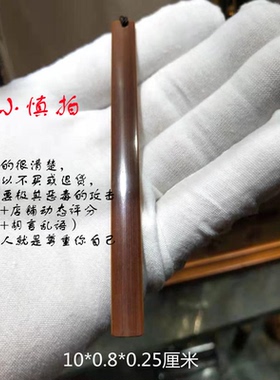 小慎拍
的很清楚,
以不买或退货,
恶极其恶毒的攻击
+店铺动态评分
+胡言乱语)
人就是尊重你自己
10*0.8*0.25厘米